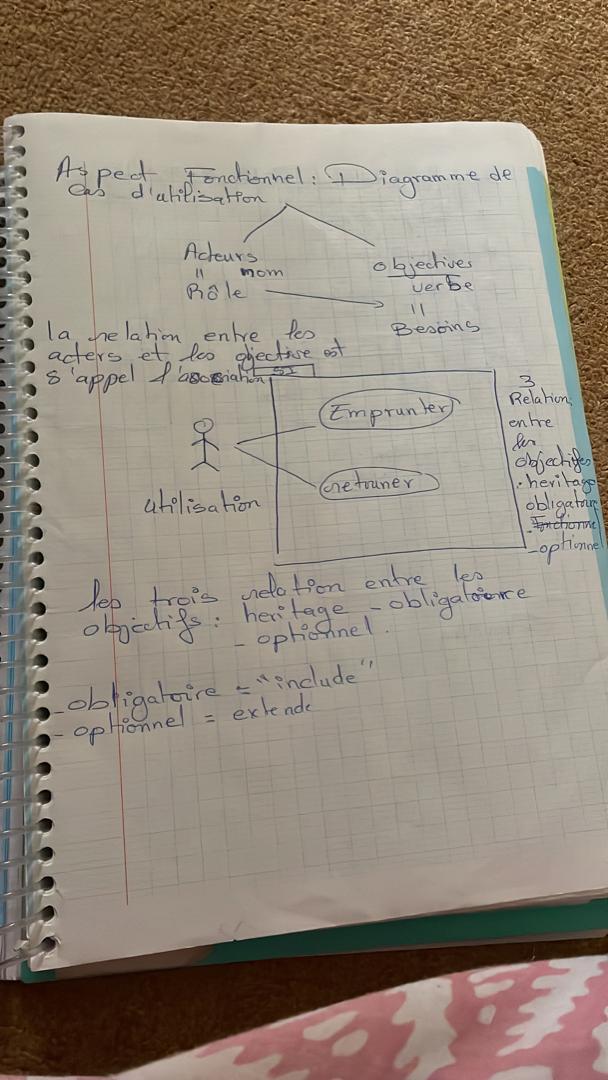 Aspect Fonctionnel : Diagramme de
cas d'utilisation
Acteurs
" nom
Rôle
objectives
verbe
"
Besoins
la relation entre les
acters et les ojective est
s'appel l'association
SI
Emprunter
retouner
utilisation
3
Relation
entre
les
objectifs
. heritage
obligatoire
- optionnel
les trois relation entre les
objectifs : heritage - obligatoire
- optionnel.
- obligatoire = "include"
- optionnel = extende